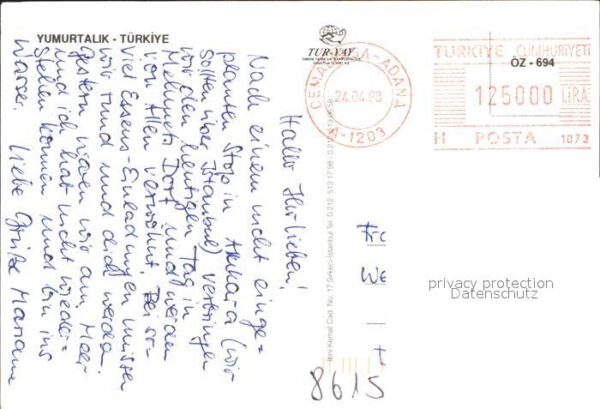 YUMURTALIK - TÜRKİYE
TUR-YAY
CEMALPAŞA-ADANA
24.04.98
H-1203
TÜRKİYE CUMHURİYETİ
ÖZ - 694
125000 LİRA
H POSTA 1073
Hallo Ihr Lieben!
Nach einem nicht einge=
planten Stop in Ankara (wir
sollten über Istanbul) verbringen
wir den heutigen Tag in
Mehmets Dorf und werden
von Allen verwöhnt. Bei so-
viel Essens-Einladungen müssen
wir rund und dick werden.
Gestern waren wir am Meer
und ich hat nicht wieder=
stehen können und bin ins
Wasser. Liebe Grüße Mariann
İbni Kemal Cad. No. 17 Sirkeci-İstanbul Tel: 0.212. 513 17 98 -
Fr
We
privacy protection
Datenschutz
8615